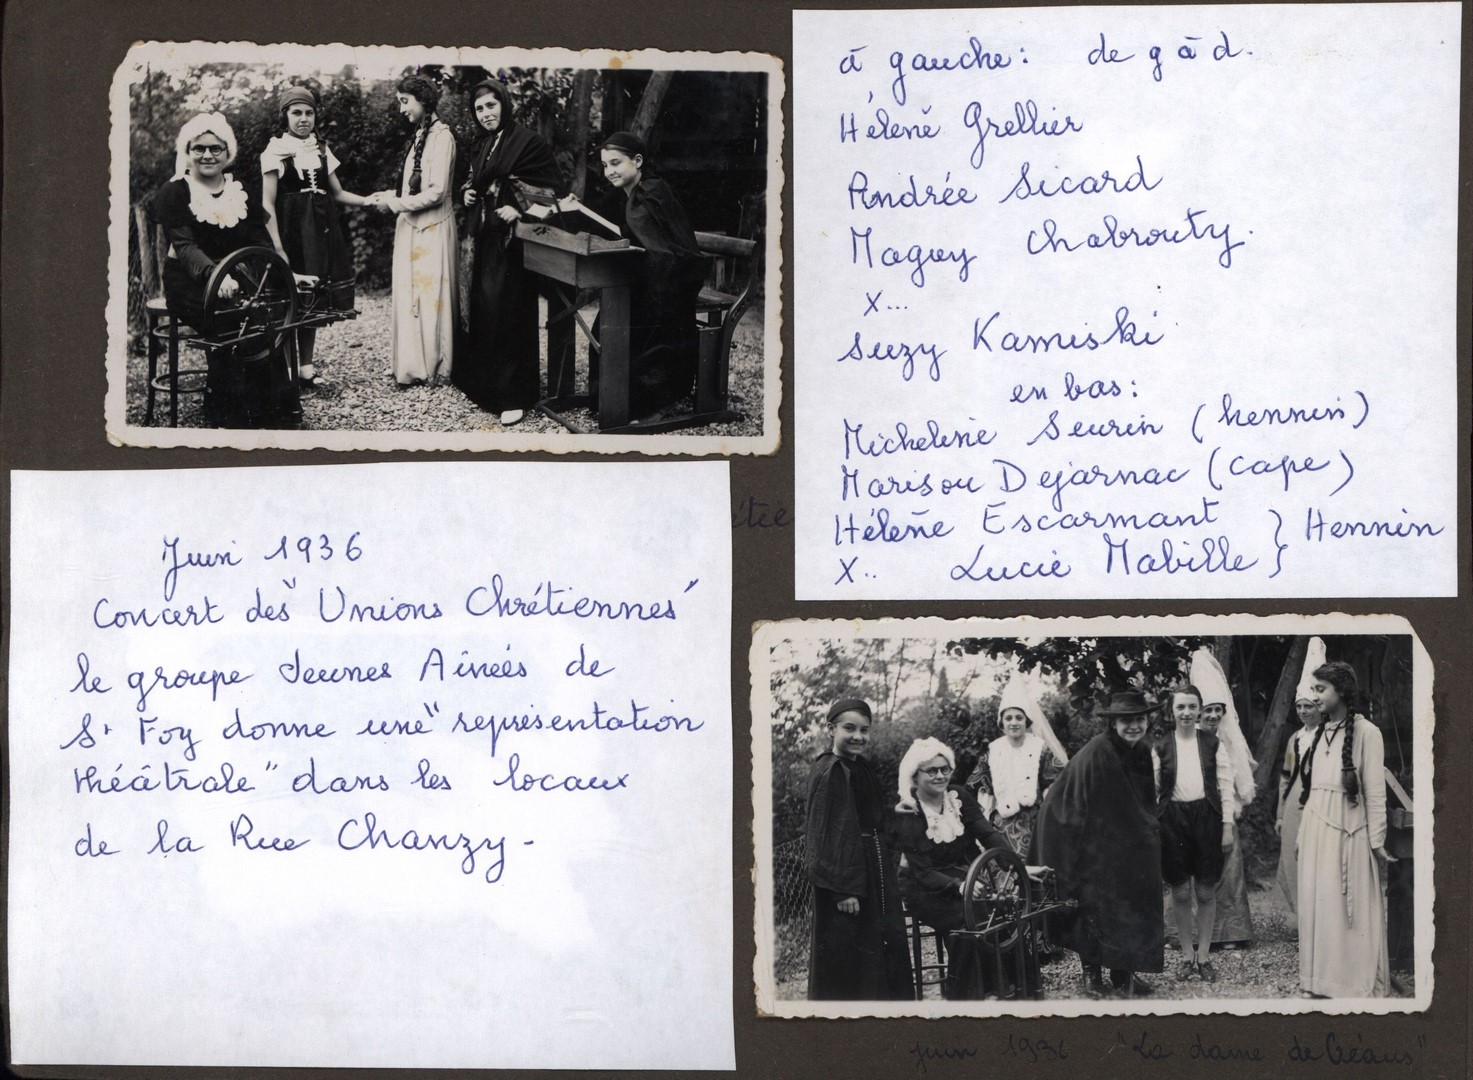 à gauche: de g à d.
Hélène Grellier
Andrée Sicard
Maguy Chabrouty.
X...
Suzy Kamiski
en bas:
Micheline Seurin (hennin)
Marisou Dejarnac (cape)
Hélène Escarmant } Hennin
X.. Lucie Mabille }
étée
Juin 1936
Concert des "Unions Chrétiennes"
le groupe Jeunes Aînées de
St Foy donne une "représentation
théâtrale" dans les locaux
de la Rue Chanzy -
juin 1936 "La dame de